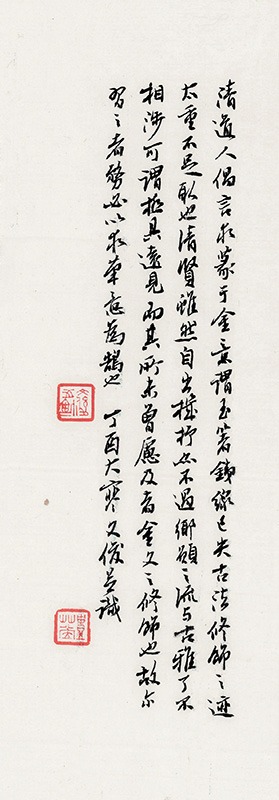 清道人倡言求篆于金意謂玉箸鐵線已失古法修飾之迹
太重不足取也清賢雖然自出機抒必不過鄉愿之流與古雅了不
相涉可謂極具遠見而其所未曾慮及者金文之修飾也故余
習之者務必以求筆意為鵠也 丁酉大寒又俊呂識